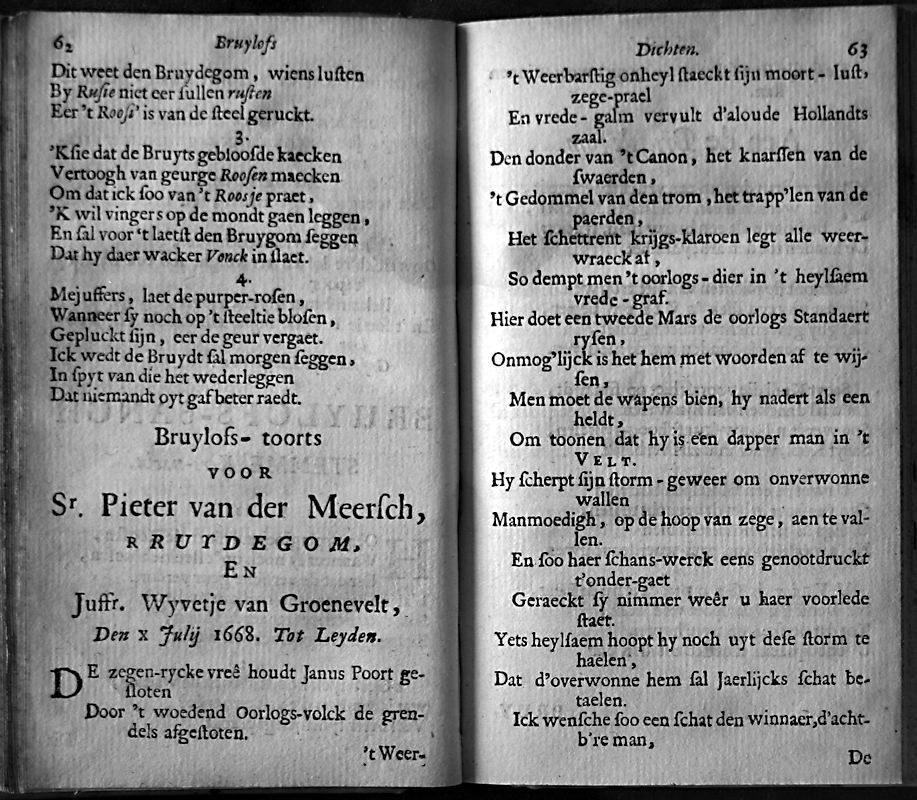 62 Bruylofs
Dit weet den Bruydegom, wiens luſten
By Ruſie niet eer ſullen ruſten
Eer 't Rooſj' is van de ſteel geruckt.
3.
'Kſie dat de Bruyts geblooſde kaecken
Vertoogh van geurge Rooſen maecken
Om dat ick ſoo van 't Roosje praet,
'K wil vingers op de mondt gaen leggen,
En ſal voor 't laetſt den Bruygom ſeggen
Dat hy daer wacker Vonck in ſlaet.
4.
Mejuffers, laet de purper-roſen,
Wanneer ſy noch op 't ſteeltie bloſen,
Gepluckt ſijn, eer de geur vergaet.
Ick wedt de Bruydt ſal morgen ſeggen,
In ſpyt van die het wederleggen
Dat niemandt oyt gaf beter raedt.
Bruylofs- toorts
VOOR
Sr. Pieter van der Meerſch,
RRUYDEGOM,
EN
Juffr. Wyvetje van Groenevelt,
Den X Julij 1668. Tot Leyden.
DE zegen-rycke vreê houdt Janus Poort ge-
ſloten
Door 't woedend Oorlogs-volck de gren-
dels afgeſloten.
't Weer-
Dichten. 63
't Weerbarſtig onheyl ſtaeckt ſijn moort-luſt,
zege-prael
En vrede-galm vervult d'aloude Hollandts
zaal.
Den donder van 't Canon, het knarſſen van de
ſwaerden,
't Gedommel van den trom, het trapp'len van de
paerden,
Het ſchettrent krijgs-klaroen legt alle weer-
wraeck af,
So dempt men 't oorlogs-dier in 't heylſaem
vrede-graf.
Hier doet een tweede Mars de oorlogs Standaert
ryſen,
Onmog'lijck is het hem met woorden af te wij-
ſen,
Men moet de wapens bien, hy nadert als een
heldt,
Om toonen dat hy is een dapper man in 't
VELT.
Hy ſcherpt ſijn ſtorm-geweer om onverwonne
wallen
Manmoedigh, op de hoop van zege, aen te val-
len.
En ſoo haer ſchans-werck eens genootdruckt
t'onder-gaet
Geraeckt ſy nimmer weêr u haer voorlede
ſtaet.
Yets heylſaem hoopt hy noch uyt deſe ſtorm te
haelen,
Dat d'overwonne hem ſal Jaerlijcks ſchat be-
taelen.
Ick wenſche ſoo een ſchat den winnaer, d'acht-
b're man,
De